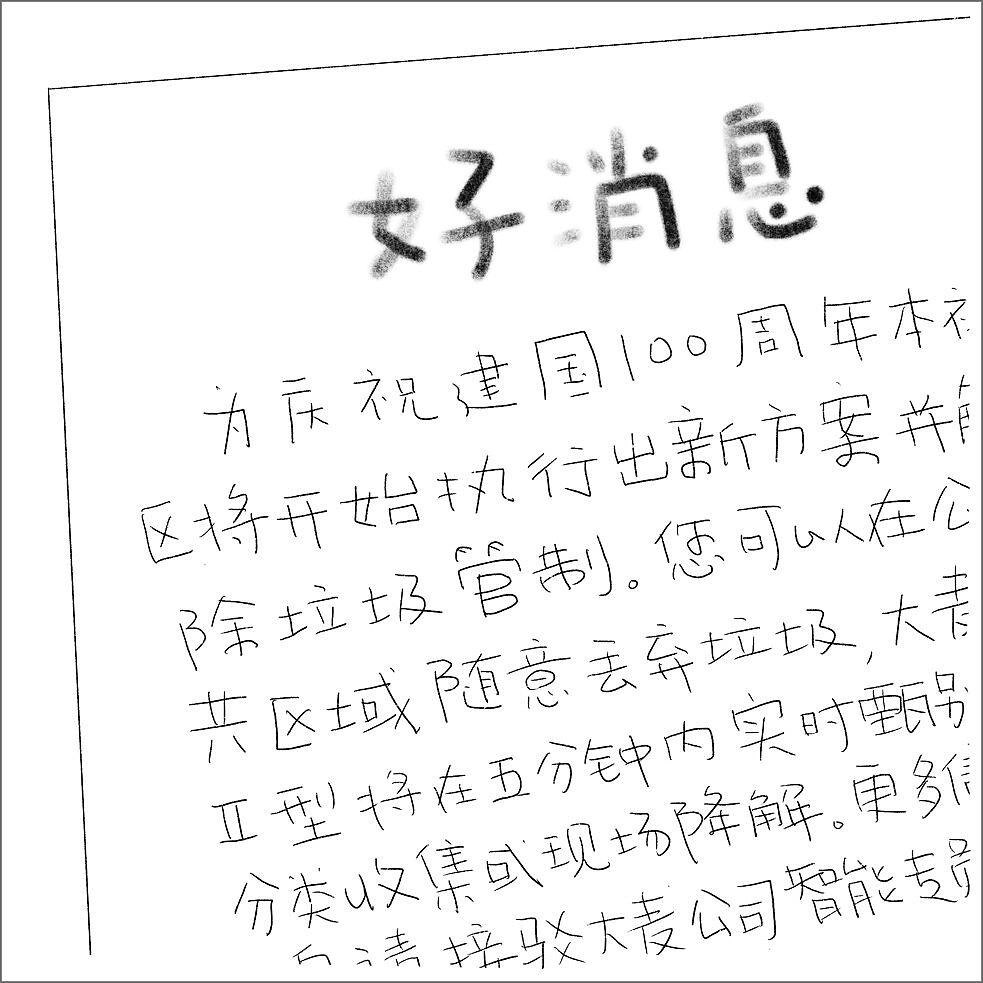 好消息
为庆祝建国100周年本社
区将开始执行出新方案并解
除垃圾管制。您可以人在公
共区域随意丢弃垃圾,大麦
II型将在五分钟内实时甄别
分类收集或现场降解。更多信
接驳大麦公司智能专员